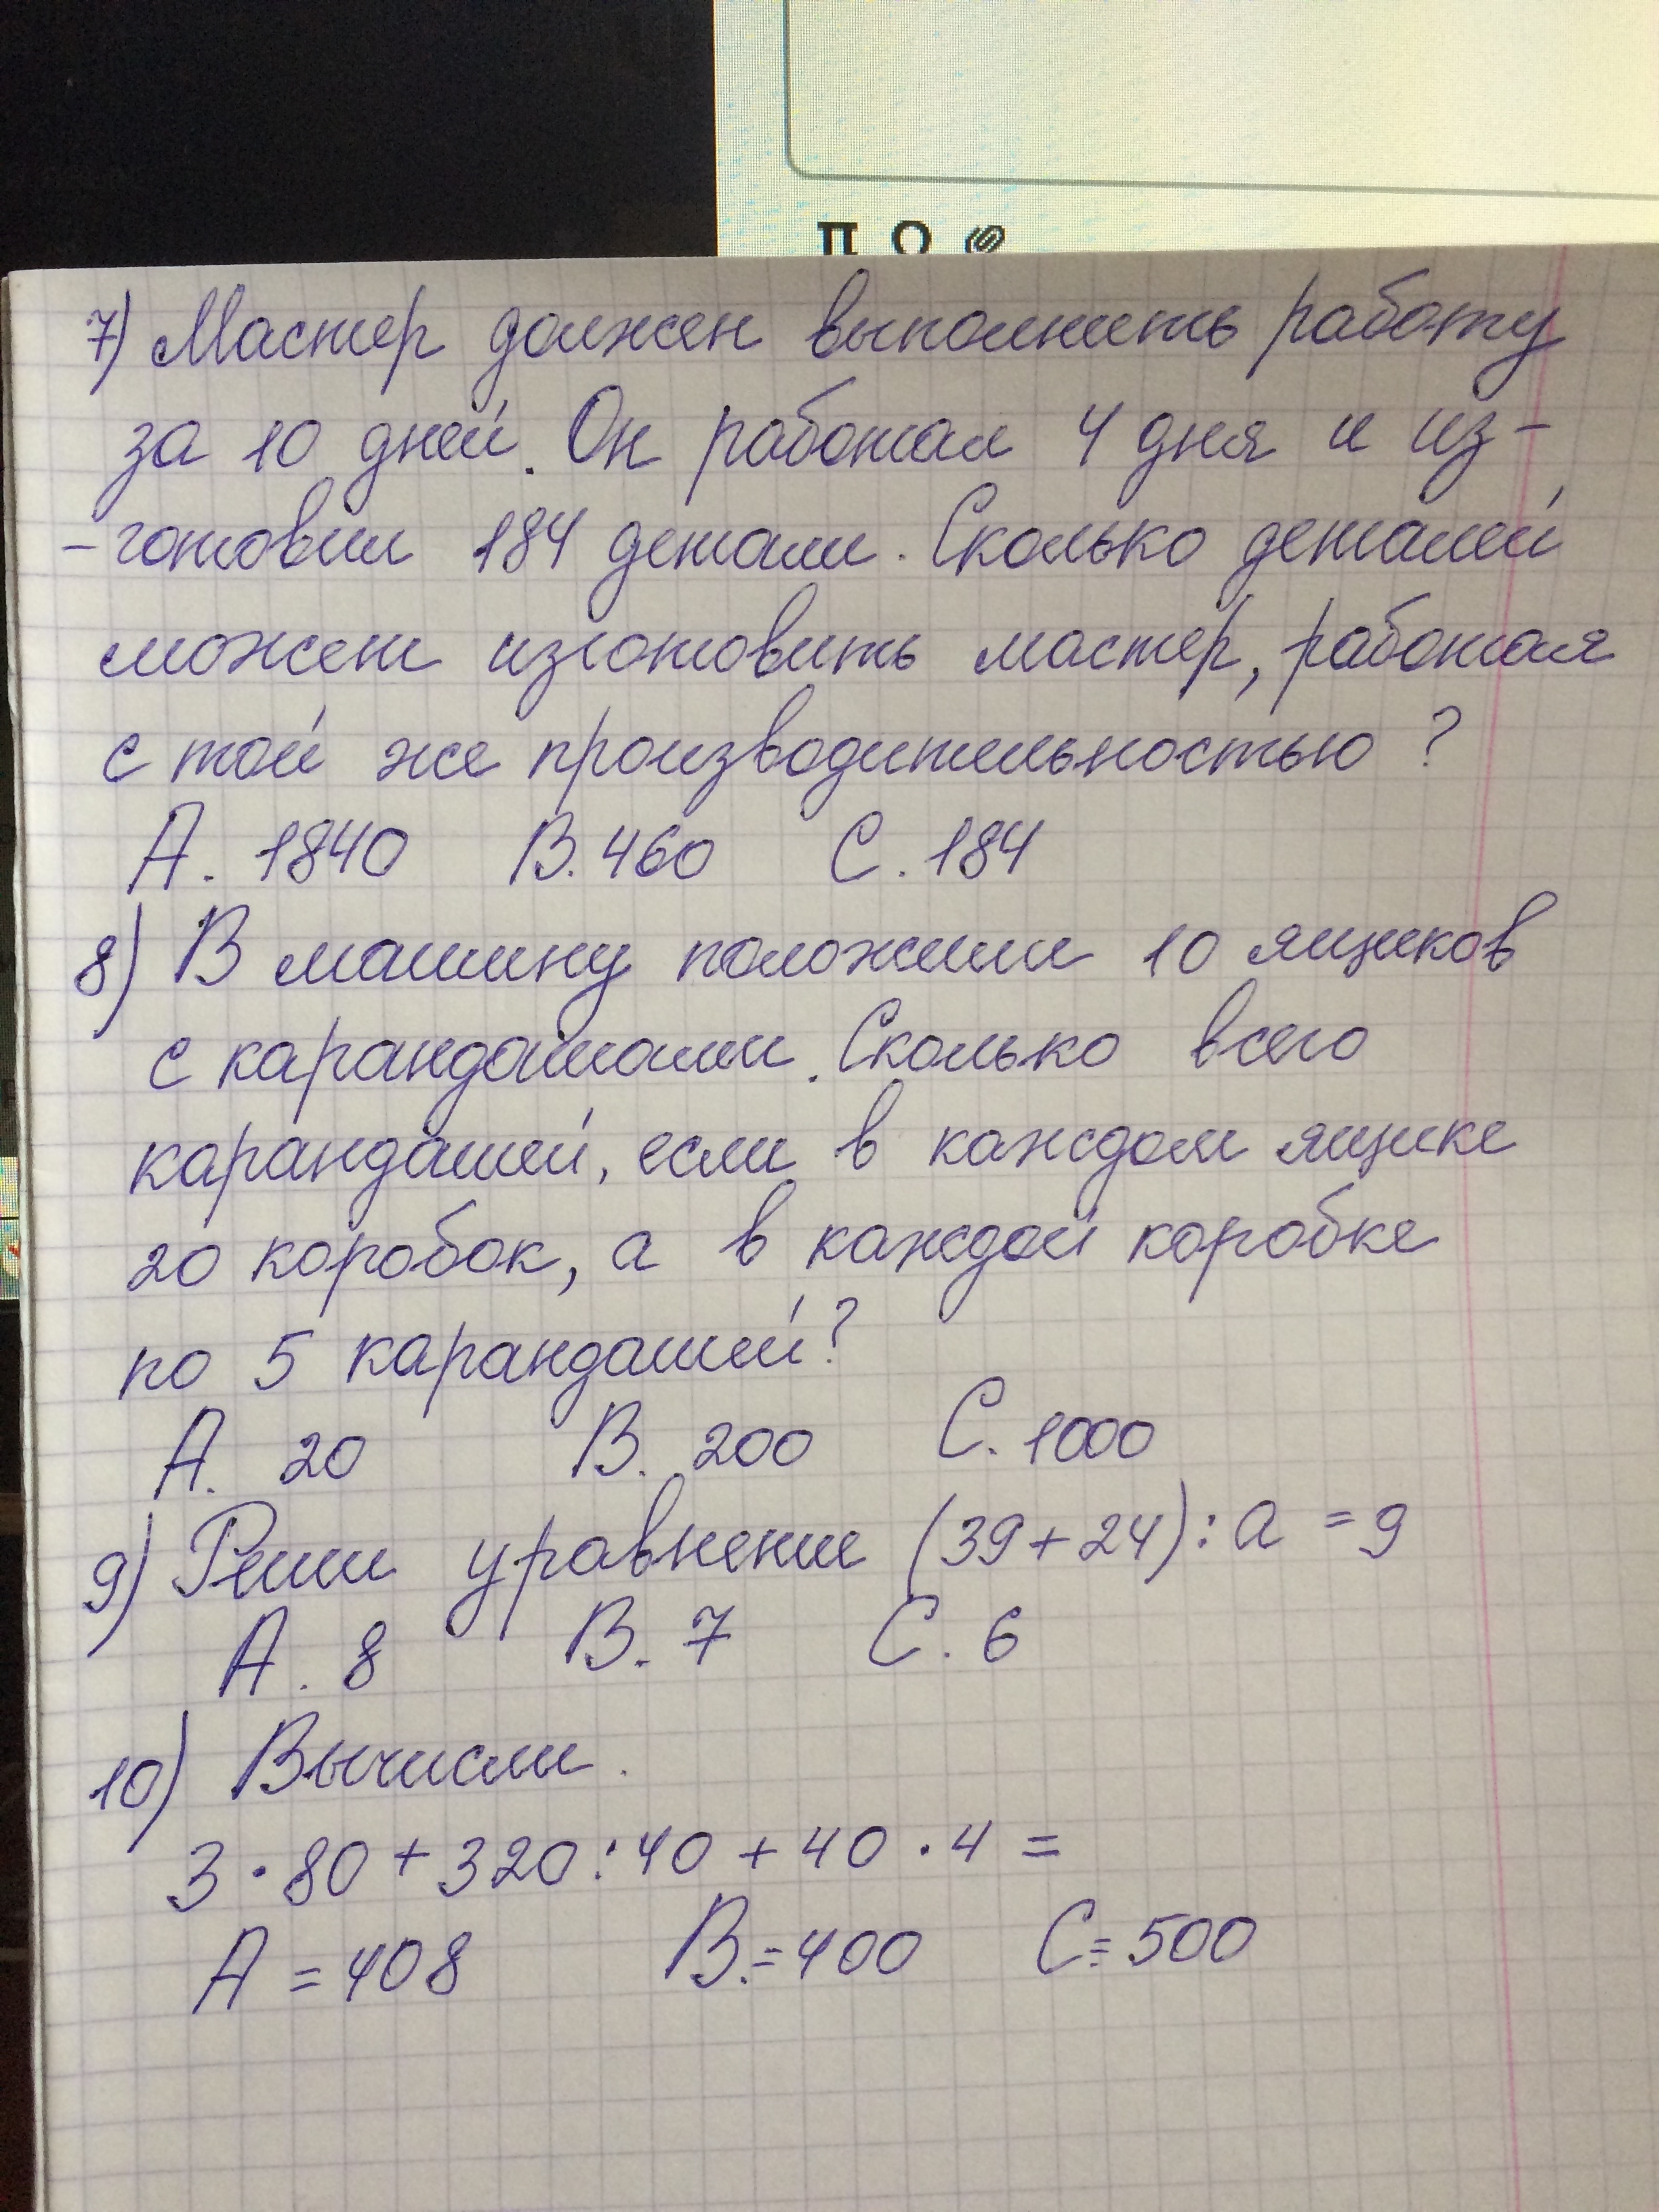 П О
7) Мастер должен выполнить работу
за 10 дней. Он работал 4 дня и из-
-готовил 184 детали. Сколько деталей
может изготовить мастер, работая
с той же производительностью?
А. 1840 В. 460 С. 184
8) В машину положили 10 ящиков
с карандашами. Сколько всего
карандашей, если в каждом ящике
20 коробок, а в каждой коробке
по 5 карандашей?
А. 20 В. 200 С. 1000
9) Реши уравнение (39+24):а = 9
А. 8 В. 7 С. 6
10) Вычисли.
3·80+320:40+40·4=
А = 408 В.=400 С.= 500